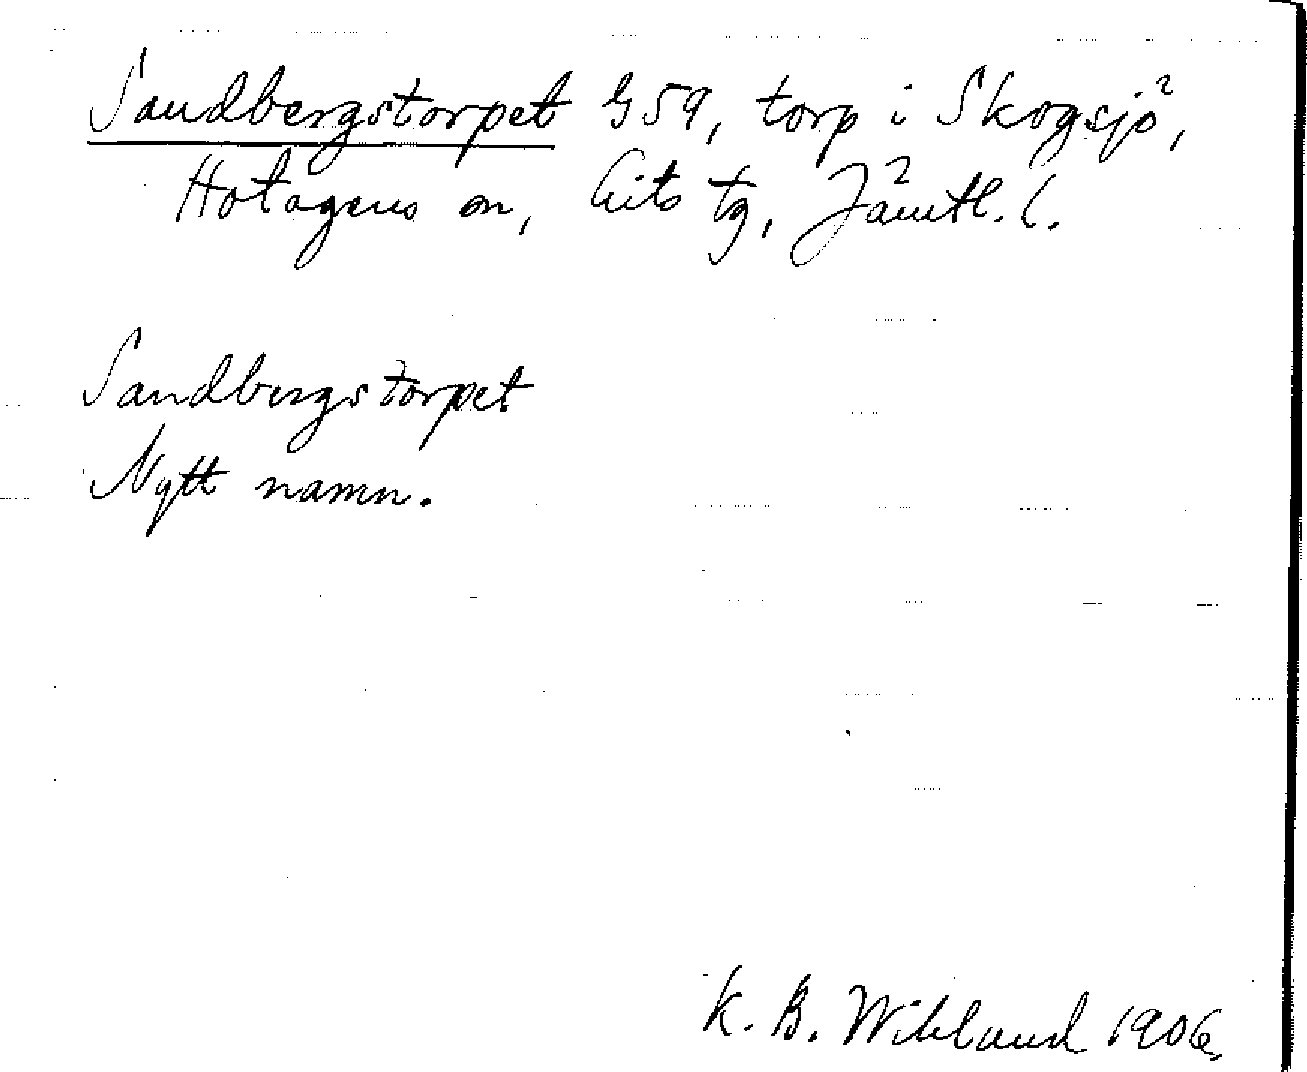 Sandbergstorpet G59, torp i Skogsjö,
Hotagens sn, Lits tg, Jämtl. l.
Sandbergstorpet
Nytt namn.
K. B. Wiklund 1906.